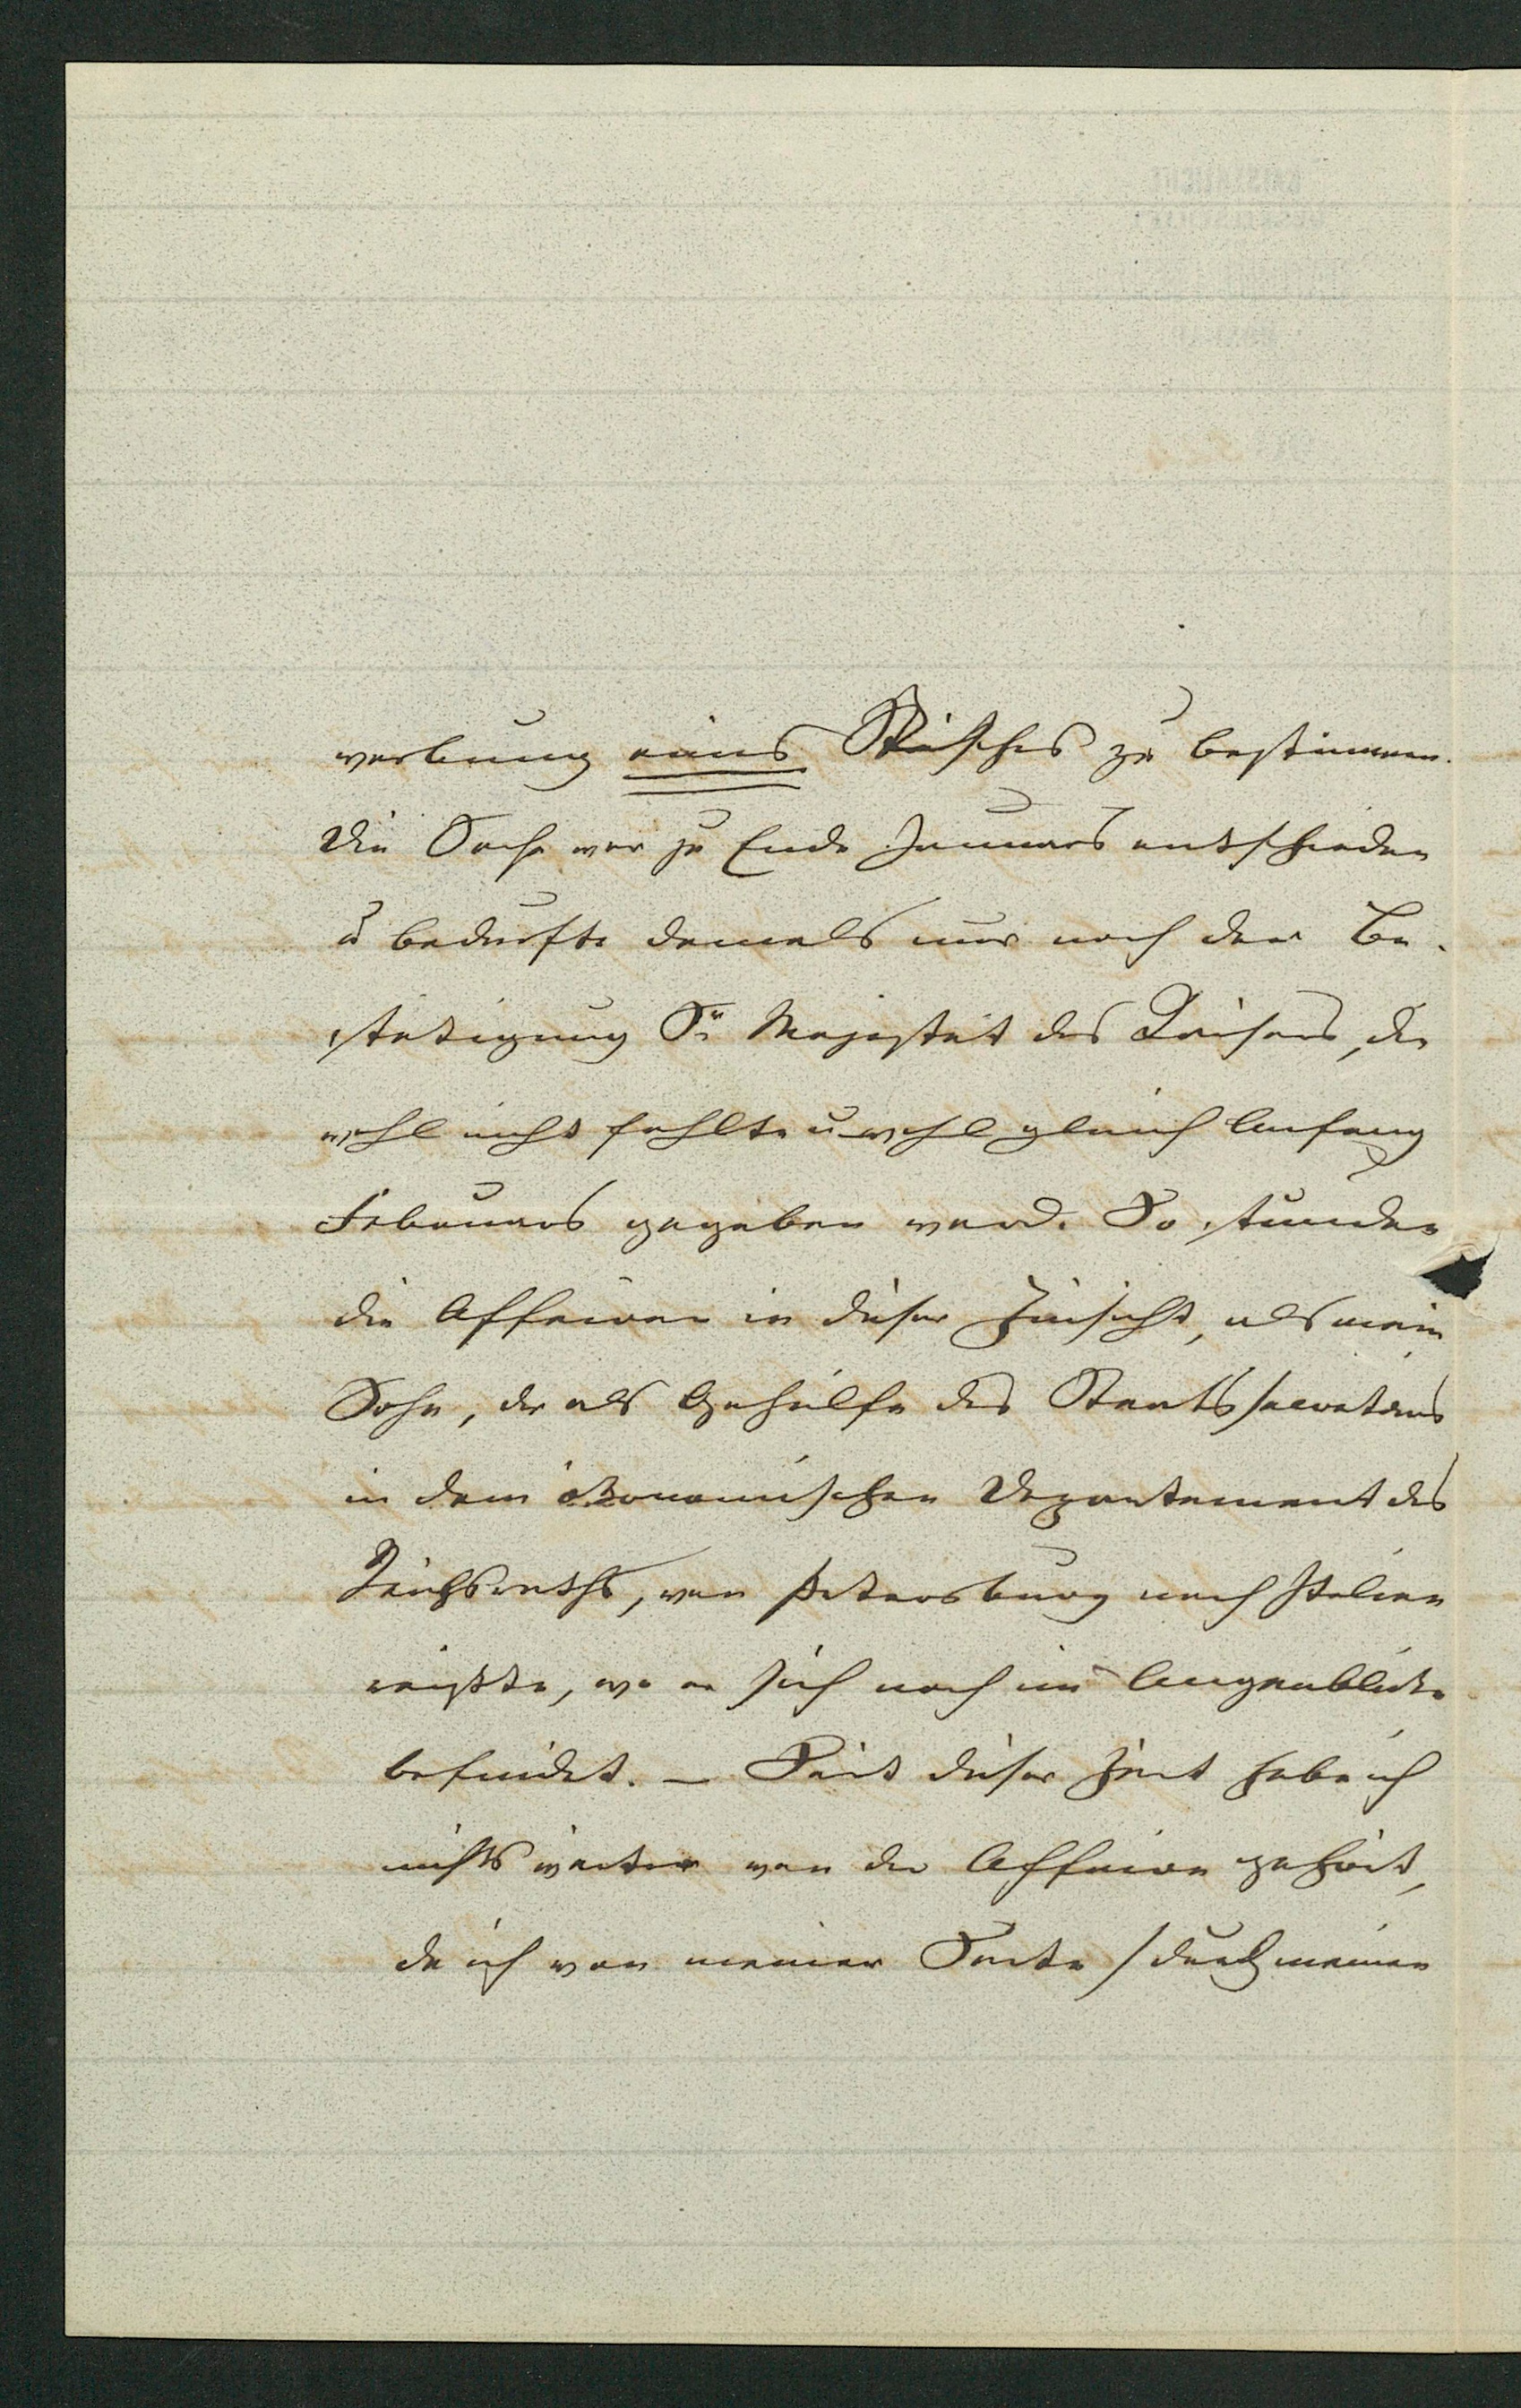 werbung eines Tisches zu bestimmen.
Die Sache war zu Ende Januars entschieden
u bedurfte damals nur noch der Be-
stätigung Sr Majestät des Kaisers, die
wohl nicht fehlte u wohl gleich Anfang
Februars gegeben ward. So stunden
die Affairen in dieser Hinsicht, als mein
Sohn, der als Gehülfe des Staatssecretärs
in dem ökonomischen Departement des
Reichsraths, von Petersburg nach Italien
reis'te, wo er sich noch im Augenblicke
befindet. – Seit dieser Zeit habe ich
nichts weiter von der Affaire gehört,
da ich von meiner Seite / durch meinen